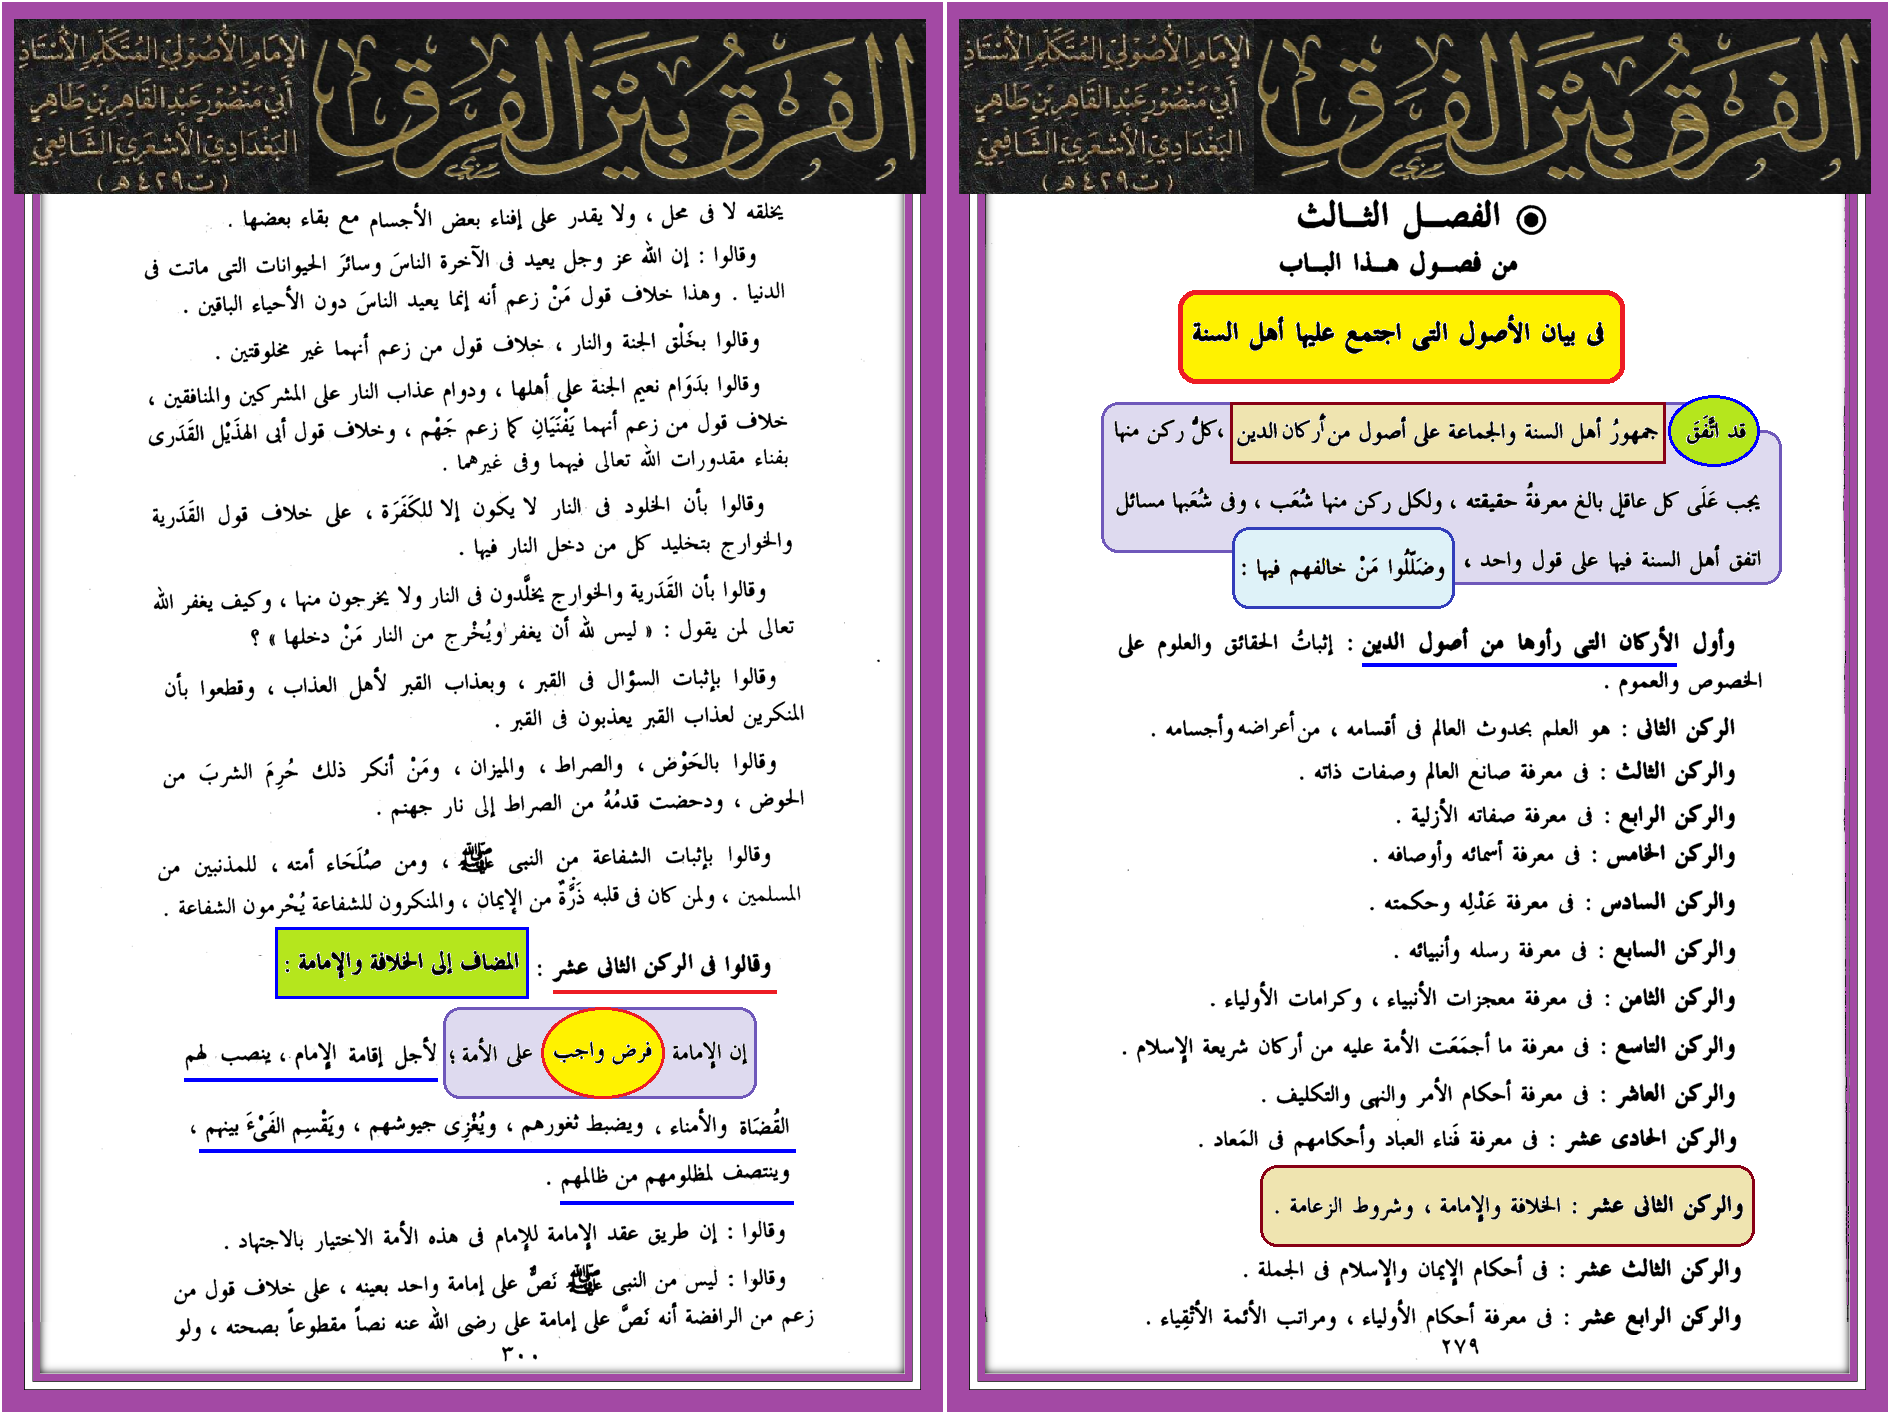 الفرق بين الفرق
الإمام الأصولي المتكلم الأستاذ
أبي منصور عبد القاهر بن طاهر
البغدادي الأشعري الشافعي
(ت ٤٢٩ هـ)
الفصـل الثـالث
من فصـول هـذا البـاب
فى بيان الأصول التى اجتمع عليها أهل السنة
قد اتَّفَقَ جمهورُ أهل السنة والجماعة على أصول من أركان الدين ، كلُّ ركن منها
يجب عَلَى كل عاقلٍ بالغ معرفةُ حقيقته ، ولكل ركن منها شُعَب ، وفى شُعَبها مسائل
اتفق أهل السنة فيها على قول واحد ، وضَلّلُوا مَنْ خالفهم فيها :
وأول الأركان التى رأوها من أصول الدين : إثباتُ الحقائق والعلوم على
الخصوص والعموم .
الركن الثانى : هو العلم بحدوث العالم فى أقسامه ، من أعراضه وأجسامه .
والركن الثالث : فى معرفة صانع العالم وصفات ذاته .
والركن الرابع : فى معرفة صفاته الأزلية .
والركن الخامس : فى معرفة أسمائه وأوصافه .
والركن السادس : فى معرفة عَدْلِه وحكمته .
والركن السابع : فى معرفة رسله وأنبيائه .
والركن الثامن : فى معرفة معجزات الأنبياء ، وكرامات الأولياء .
والركن التاسع : فى معرفة ما أجمَعَت الأمة عليه من أركان شريعة الإسلام .
والركن العاشر : فى معرفة أحكام الأمر والنهى والتكليف .
والركن الحادى عشر : فى معرفة فَناء العباد وأحكامهم فى المَعاد .
والركن الثانى عشر : الخلافة والإمامة ، وشروط الزعامة .
والركن الثالث عشر : فى أحكام الإيمان والإسلام فى الجملة .
والركن الرابع عشر : فى معرفة أحكام الأولياء ، ومراتب الأئمة الأتْقِياء .
٢٧٩
الفرق بين الفرق
الإمام الأصولي المتكلم الأستاذ
أبي منصور عبد القاهر بن طاهر
البغدادي الأشعري الشافعي
(ت ٤٢٩ هـ)
يخلقه لا فى محل ، ولا يقدر على إفناء بعض الأجسام مع بقاء بعضها .
وقالوا : إن الله عز وجل يعيد فى الآخرة الناسَ وسائرَ الحيوانات التى ماتت فى
الدنيا . وهذا خلاف قول مَنْ زعم أنه إنما يعيد الناسَ دون الأحياء الباقين .
وقالوا بخَلْق الجنة والنار ، خلاف قول من زعم أنهما غير مخلوقتين .
وقالوا بدَوَام نعيم الجنة على أهلها ، ودوام عذاب النار على المشركين والمنافقين ،
خلاف قول من زعم أنهما يَفْنَيَانِ كما زعم جَهْم ، وخلاف قول أبى الهذَيْل القَدَرى
بفناء مقدورات الله تعالى فيهما وفى غيرهما .
وقالوا بأن الخلود فى النار لا يكون إلا للكَفَرَة ، على خلاف قول القَدَرية
والخوارج بتخليد كل من دخل النار فيها .
وقالوا بأن القَدَرية والخوارج يخلَّدون فى النار ولا يخرجون منها ، وكيف يغفر الله
تعالى لمن يقول : « ليس لله أن يغفر ويُخْرج من النار مَنْ دخلها » ؟
وقالوا بإثبات السؤال فى القبر ، وبعذاب القبر لأهل العذاب ، وقطعوا بأن
المنكرين لعذاب القبر يعذبون فى القبر .
وقالوا بالحَوْض ، والصراط ، والميزان ، ومَنْ أنكر ذلك حُرِمَ الشربَ من
الحوض ، ودحضت قدمُهُ من الصراط إلى نار جهنم .
وقالوا بإثبات الشفاعة من النبى ﷺ ، ومن صُلَحَاء أمته ، للمذنبين من
المسلمين ، ولمن كان فى قلبه ذَرَّةٌ من الإيمان ، والمنكرون للشفاعة يُحْرمون الشفاعة .
وقالوا فى الركن الثانى عشر : المضاف إلى الخلافة والإمامة :
إن الإمامة فرض واجب على الأمة ؛ لأجل إقامة الإمام ، ينصب لهم
القُضَاة والأمناء ، ويضبط ثغورهم ، ويُغْزِى جيوشهم ، ويَقْسِم الفَىْءَ بينهم ،
وينتصف لمظلومهم من ظالمهم .
وقالوا : إن طريق عقد الإمامة للإمام فى هذه الأمة الاختيار بالاجتهاد .
وقالوا : ليس من النبى ﷺ نَصٌّ على إمامة واحد بعينه ، على خلاف قول من
زعم من الرافضة أنه نَصَّ على إمامة على رضى الله عنه نصاً مقطوعاً بصحته ، ولو
٣٠٠